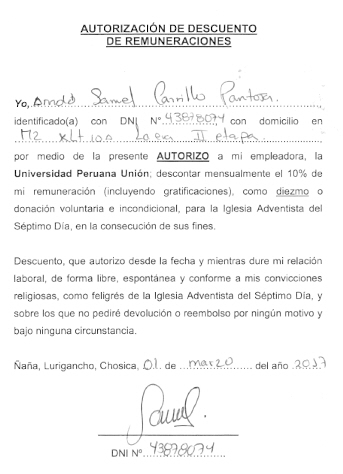 AUTORIZACIÓN DE DESCUENTO
DE REMUNERACIONES
Yo, Samel Carrillo Pantoja
identificado(a) con DNI Nº 43878074 con domicilio en
Mz Lt II etapa
por medio de la presente AUTORIZO a mi empleadora, la
Universidad Peruana Unión; descontar mensualmente el 10% de
mi remuneración (incluyendo gratificaciones), como diezmo o
donación voluntaria e incondicional, para la Iglesia Adventista del
Séptimo Día, en la consecución de sus fines.
Descuento, que autorizo desde la fecha y mientras dure mi relación
laboral, de forma libre, espontánea y conforme a mis convicciones
religiosas, como feligrés de la Iglesia Adventista del Séptimo Día, y
sobre los que no pediré devolución o reembolso por ningún motivo y
bajo ninguna circunstancia.
Ñaña, Lurigancho, Chosica, 01 de marzo del año 2017
Samel.
DNI Nº 43878074